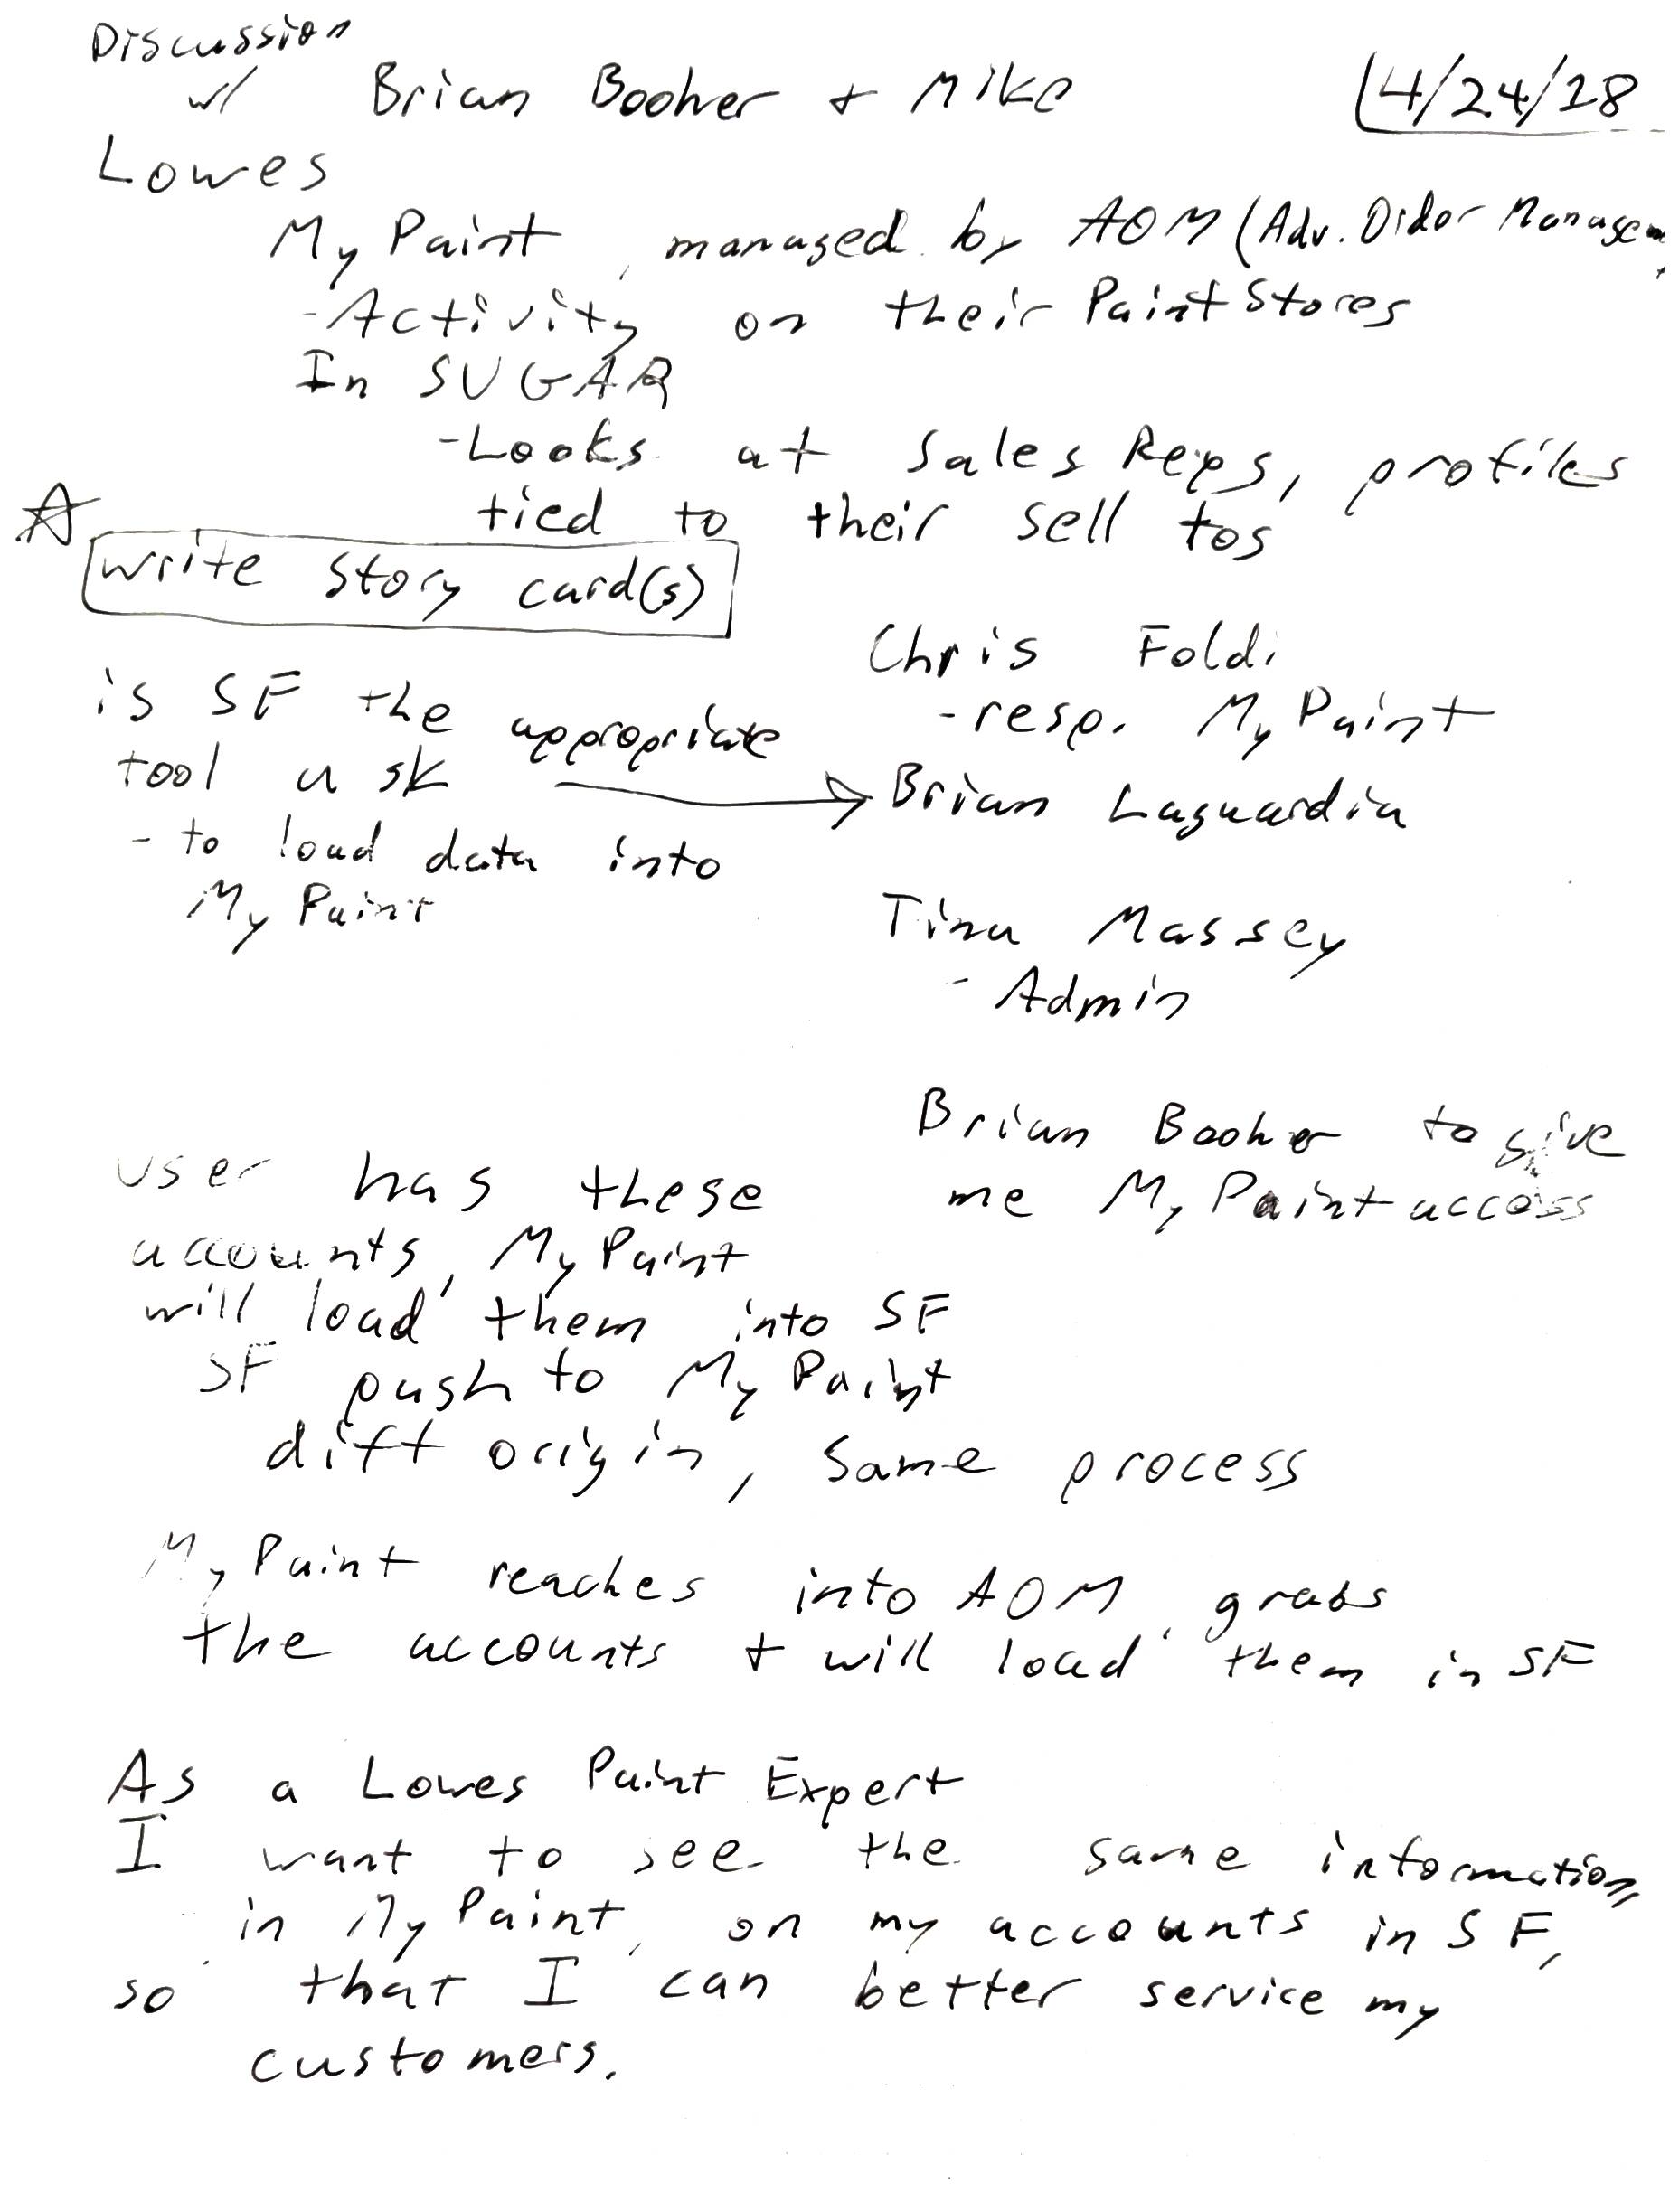 Discussion
w/ Brian Booher + Mike
4/24/18
Lowes
My Paint, managed by AOM (Adv. Order Managem
- Activity on their Paint Stores
In SUGAR
- Looks at Sales Reps, profiles
tied to their sell tos
write story card(s)
is SF the appropriate
tool ask
- to load data into
My Paint
Chris Foldi
- resp. My Paint
Brian Laguardia
Tina Massey
- Admin
Brian Booher to give
me My Paint access
user has these
accounts, My Paint
will 'load' them into SF
SF push to My Paint
diff origin, same process
My Paint reaches into AOM, grabs
the accounts + will 'load' them in SF
As a Lowes Paint Expert
I want to see the same information,
in My Paint, on my accounts in SF,
so that I can better service my
customers.